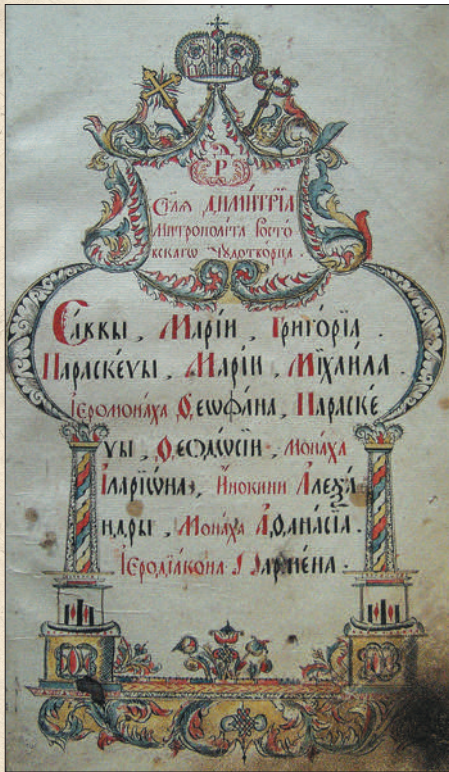 Р
Ст҃ля ДИМИ́ТРЇЯ
Митрополи́та Росто́
вскагѡ Чꙋдотво́рца .
Са́ввы , Марі́и , Григо́рїа .
Параске́ѵы , Марі́и , Мїхаи́ла .
Іеромона́ха Ѳеѡфа́на , Параске́
ѵы , Ѳеодо́сїи , мона́ха
Іларїѡ́на , И́нокини Алеѯа́
ндры , Мона́ха Аѳана́сїа .
Іеродїа́кона Пармена .